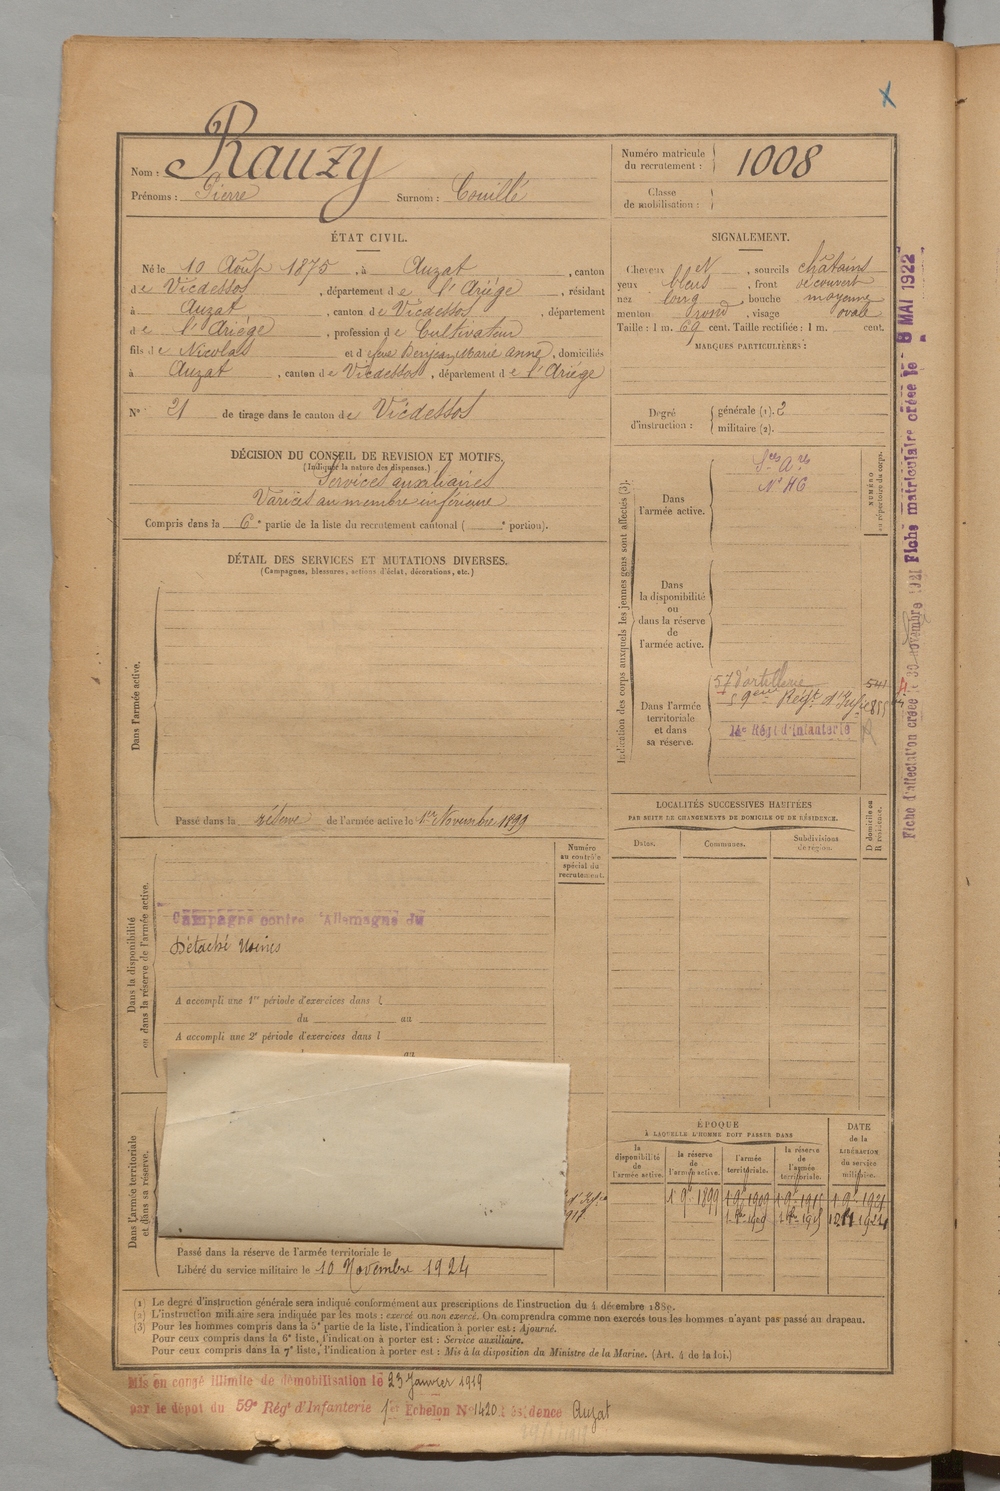 Nom : Rauzy
Prénoms : Pierre Surnom : Couillé
Numéro matricule
du recrutement : 1008
Classe
de mobilisation :
ÉTAT CIVIL.
Né le 10 Août 1875, à Auzat, canton
de Vicdessos, département de l'Ariège, résidant
à Auzat, canton de Vicdessos, département
de l'Ariège, profession de Cultivateur
fils de Nicolas et d Marie Anne, domiciliés
à Auzat, canton de Vicdessos, département de l'Ariège
N° 21 de tirage dans le canton de Vicdessos
SIGNALEMENT.
Cheveux , sourcils châtains
yeux bleus, front découvert
nez long, bouche moyenne
menton rond, visage ovale
Taille : 1 m. 69 cent. Taille rectifiée : 1 m. cent.
MARQUES PARTICULIÈRES :
Degré
d'instruction :
générale (1). 2
militaire (2).
DÉCISION DU CONSEIL DE REVISION ET MOTIFS.
(Indiquer la nature des dispenses.)
Services auxiliaires
Varices au membre inférieur
Compris dans la 6e partie de la liste du recrutement cantonal ( e portion).
DÉTAIL DES SERVICES ET MUTATIONS DIVERSES.
(Campagnes, blessures, actions d'éclat, décorations, etc.)
Dans l'armée active.
Passé dans la réserve de l'armée active le 1er Novembre 1899
Indication des corps auxquels les jeunes gens sont affectés (3).
NUMÉRO
au répertoire du corps.
Dans
l'armée active.
Sces Ares
N° 46
Dans
la disponibilité
ou
dans la réserve
de
l'armée active.
Dans l'armée
territoriale
et dans
sa réserve.
57 d'artillerie 541
59ème Régt d'Infie
14e Régt d'Infanterie
Fiche d'affectation créée le 30 novembre 1921 Fiche matriculaire créée le 8 MAI 1922
LOCALITÉS SUCCESSIVES HABITÉES
PAR SUITE DE CHANGEMENTS DE DOMICILE OU DE RÉSIDENCE.
Dates. Communes. Subdivisions
de région.
D domicile ou
R résidence.
Dans la disponibilité
ou dans la réserve de l'armée active.
Numéro
au contrôle
spécial du
recrutement.
Campagne contre l'Allemagne du
Détaché Usines
A accompli une 1re période d'exercices dans l
du au
A accompli une 2e période d'exercices dans l
au
Dans l'armée territoriale
et dans sa réserve.
Passé dans la réserve de l'armée territoriale le
Libéré du service militaire le 10 Novembre 1924
ÉPOQUE
À LAQUELLE L'HOMME DOIT PASSER DANS
la
disponibilité
de
l'armée active.
la réserve
de
l'armée active.
l'armée
territoriale.
la réserve
de
l'armée
territoriale.
DATE
de la
LIBÉRATION
du service
militaire.
1 9e 1899 1 9e 1909 1 9e 1915 1 9e 1921
1909 1915 1924
(1) Le degré d'instruction générale sera indiqué conformément aux prescriptions de l'instruction du 4 décembre 1889.
(2) L'instruction militaire sera indiquée par les mots : exercé ou non exercé. On comprendra comme non exercés tous les hommes n'ayant pas passé au drapeau.
(3) Pour les hommes compris dans la 5e partie de la liste, l'indication à porter est : Ajourné.
Pour ceux compris dans la 6e liste, l'indication à porter est : Service auxiliaire.
Pour ceux compris dans la 7e liste, l'indication à porter est : Mis à la disposition du Ministre de la Marine. (Art. 4 de la loi.)
Mis en congé illimité de démobilisation le 23 Janvier 1919
par le dépôt du 59e Régt d'Infanterie 1er Echelon N° 1420 Résidence Auzat